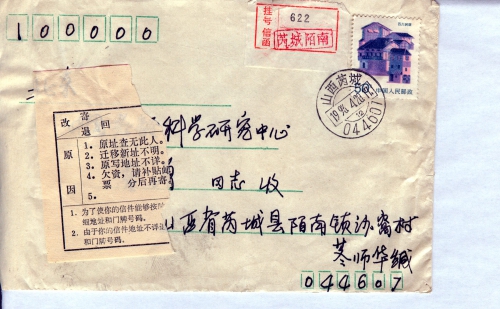 挂号信函
622
芮城陌南
100000
50 中国人民邮政
山西芮城
044607
科学研究中心
同志 收
改寄
退回
原因
1. 原址查无此人。
2. 迁移新址不明。
3. 原写地址不详。
4. 欠资,请补贴邮
票 分后再寄
5.
1. 为了使你的信件能够按
组地址和门牌号码。
2. 由于你的信件地址不详
和门牌号码。
山西省芮城县陌南镇沙窝村
师华缄
044607